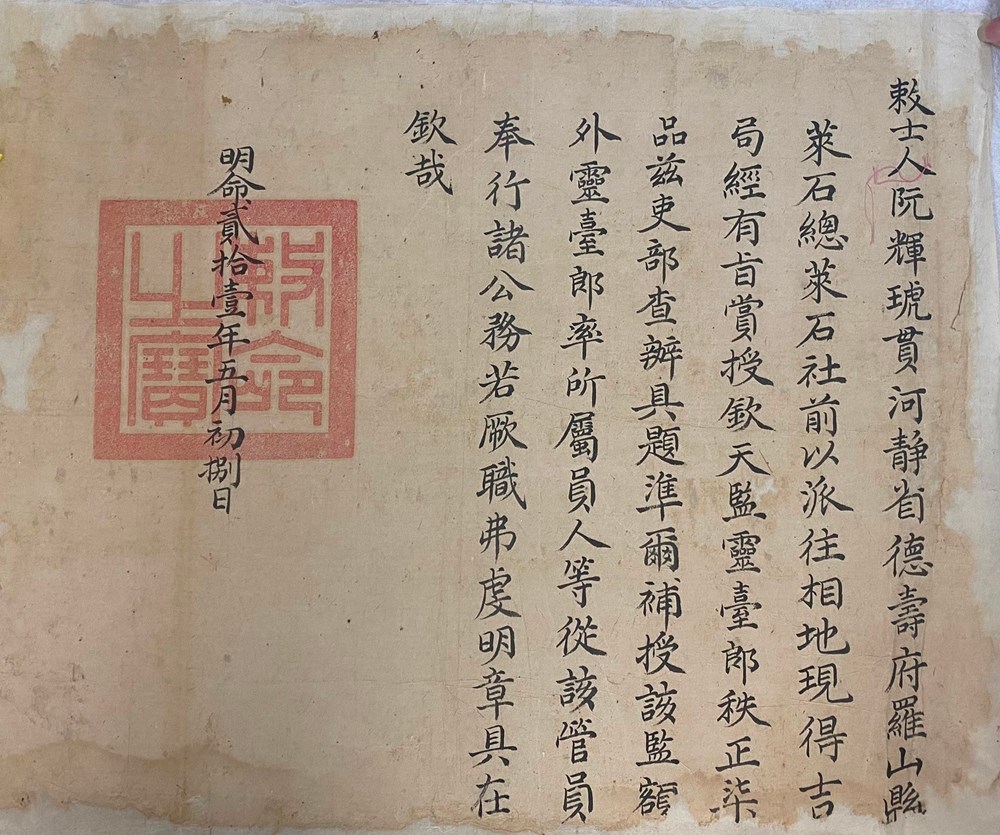 敕士人阮輝琥貫河靜省德壽府羅山縣
萊石總萊石社前以派往相地現得吉
局經有旨賞授欽天監靈臺郎秩正柒
品茲吏部查辦具題準爾補授該監額
外靈臺郎率所屬員人等從該管員
奉行諸公務若厥職弗虔明章具在
欽哉
明命貳拾壹年五月初捌日
敕命之寶